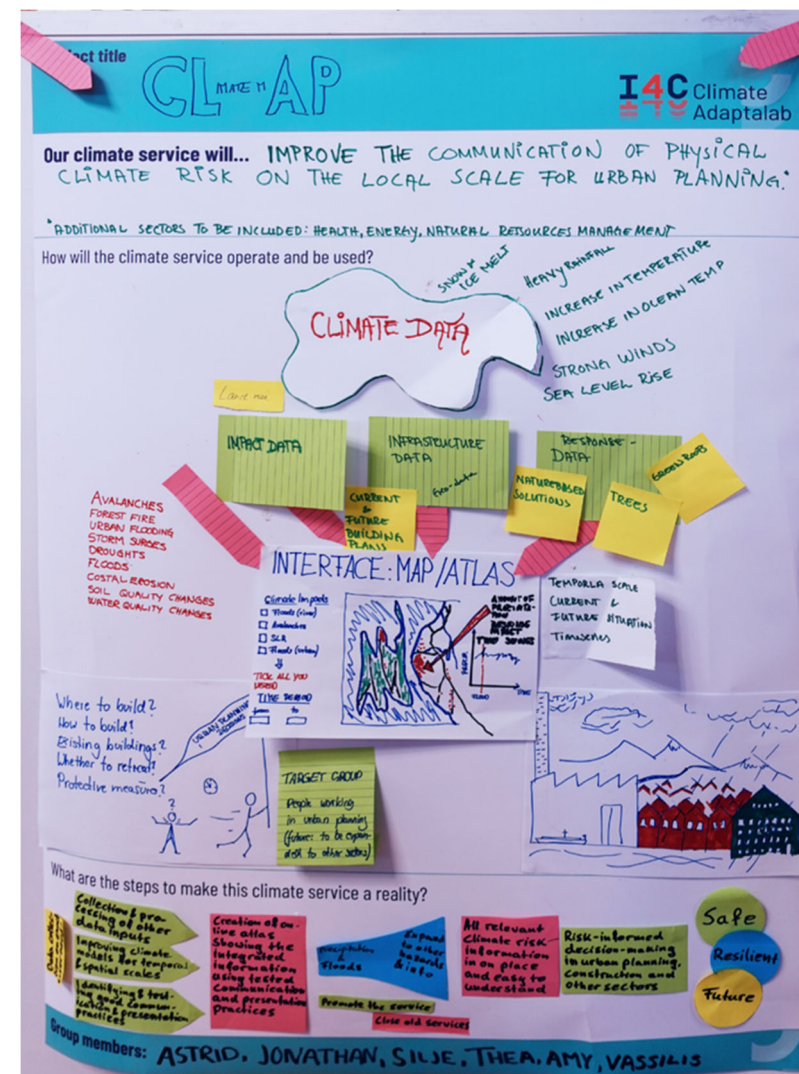 ct title
CLIMATE MAP
I4C Climate
Adaptalab
Our climate service will... IMPROVE THE COMMUNICATION OF PHYSICAL
CLIMATE RISK ON THE LOCAL SCALE FOR URBAN PLANNING.*
*ADDITIONAL SECTORS TO BE INCLUDED: HEALTH, ENERGY, NATURAL RESSOURCES MANAGEMENT
How will the climate service operate and be used?
SNOW &
ICE MELT
HEAVY RAINFALL
INCREASE IN TEMPERATURE
INCREASE IN OCEAN TEMP
STRONG WINDS
SEA LEVEL RISE
CLIMATE DATA
IMPACT DATA
INFRASTRUCTURE
DATA
Geo-data
RESPONSE-
DATA
CURRENT
&
FUTURE
BUILDING
PLANS
NATUREBASED
SOLUTIONS
TREES
GREEN ROOFS
AVALANCHES
FOREST FIRE
URBAN FLOODING
STORM SURGES
DROUGHTS
FLOODS
COSTAL EROSION
SOIL QUALITY CHANGES
WATER QUALITY CHANGES
INTERFACE: MAP/ATLAS
Climate Impacts
Floods (river)
Avalanches
SLR
Floods (urban)
TICK ALL YOU
NEED
TIME PERIOD
to
AMOUNT OF
IMPACT
TIME
TEMPORLA SCALE
CURRENT &
FUTURE SITUATION
Timeseries
Where to build?
How to build?
Existing buildings?
Whether to retreat?
Protective measure?
URBAN PLANNING
?
TARGET GROUP
People working
in urban planning
(future: to be expan-
ded to other sectors)
What are the steps to make this climate service a reality?
Data collec-
Collection & pro-
cessing of other
data inputs
Improving climate
models for temporal
& spatial scales
Identifying & test-
ing good commun-
ication & presentation
practices
Creation of on-
live atlas
Showing the
integrated
information
using tested
communication
and presentation
Practices
precipitation
& Floods
Expand
to other
hazards
& info
Promote the service
Close old services
All relevant
climate risk
information
in on place
and easy to
understand
Risk-informed
decision-making
in urban planning,
construction and
other sectors
Safe
Resilient
Future
Group members: ASTRID, JONATHAN, SILJE, THEA, AMY, VASSILIS